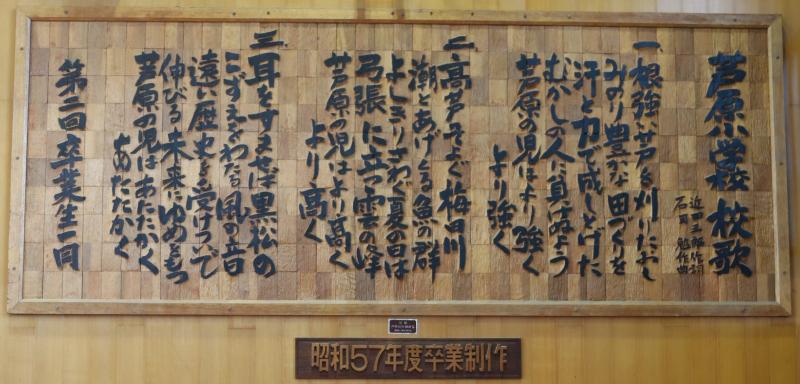 芦原小学校 校歌
近田三郎作詞
石田 勉作曲
一、根強い芦を刈りたおし
みのり豊かな田づくりを
汗と力で成しとげた
むかしの人に負けぬよう
芦原の児はより強く
より強く
二、高芦そよぐ梅田川
潮とあげくる魚の群
よしきりさわぐ夏の日は
弓張に立つ雲の峰
芦原の児はより高く
より高く
三、耳をすませば黒松の
こずえをわたる風の音
遠い歴史を受けついで
伸びる未来にゆめをもつ
芦原の児はあたたかく
あたたかく
第二回卒業生一同
昭和57年度卒業制作